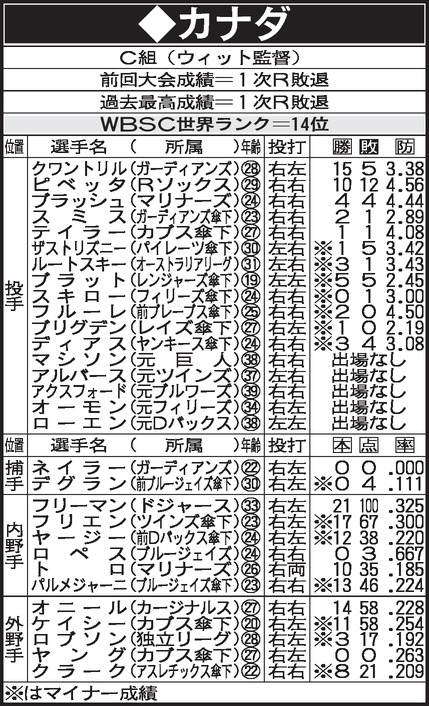 ◆カナダ
C組（ウィット監督）
前回大会成績＝1次R敗退
過去最高成績＝1次R敗退
WBSC世界ランク＝14位
位置 選手名 （所属） 年齢 投打 勝 敗 防
投手
クワントリル（ガーディアンズ）㉘ 右左 15 5 3.38
ピベッタ（Rソックス）㉙ 右右 10 12 4.56
ブラッシュ（マリナーズ）㉔ 右右 4 4 4.44
スミス（ガーディアンズ傘下）㉓ 右右 2 1 2.89
テイラー（カブス傘下）㉗ 右右 1 1 4.08
ザストリズニー（パイレーツ傘下）㉚ 左左 ※1 5 3.42
ルートスキー（オーストラリアリーグ）㉛ 左右 ※3 1 3.43
ブラット（レンジャーズ傘下）⑲ 左左 ※5 5 2.45
スキロー（フィリーズ傘下）㉔ 右右 ※0 1 3.00
フルーレ（前ブレーブス傘下）㉕ 右右 ※2 0 4.50
ブリグデン（レイズ傘下）㉗ 右左 ※1 0 2.19
ディアス（ヤンキース傘下）㉔ 右右 ※3 4 3.08
マシソン（元巨人）㊳ 右右 出場なし
アルバース（元ツインズ）㊲ 左右 出場なし
アクスフォード（元ブルワーズ）㊴ 右右 出場なし
オーモン（元フィリーズ）㉞ 右左 出場なし
ローエン（元Dバックス）㊳ 左左 出場なし
位置 選手名 （所属） 年齢 投打 本 点 率
捕手
ネイラー（ガーディアンズ）㉒ 右左 0 0 .000
デグラン（前ブルージェイズ傘下）㉚ 右左 ※0 4 .111
内野手
フリーマン（ドジャース）㉝ 右左 21 100 .325
フリエン（ツインズ傘下）㉓ 右左 ※17 67 .300
ヤージー（前Dバックス傘下）㉔ 右左 ※12 38 .220
ロペス（ブルージェイズ）㉔ 右右 0 3 .667
トロ（マリナーズ）㉖ 右両 10 35 .185
パルメジャーニ（ブルージェイズ傘下）㉓ 右右 ※13 46 .224
外野手
オニール（カージナルス）㉗ 右右 14 58 .228
ケイシー（カブス傘下）⑳ 右左 ※11 58 .254
ロブソン（独立リーグ）㉘ 右左 ※3 17 .192
ヤング（カブス傘下）㉗ 右左 0 0 .263
クラーク（アスレチックス傘下）㉒ 右右 ※8 21 .209
※はマイナー成績